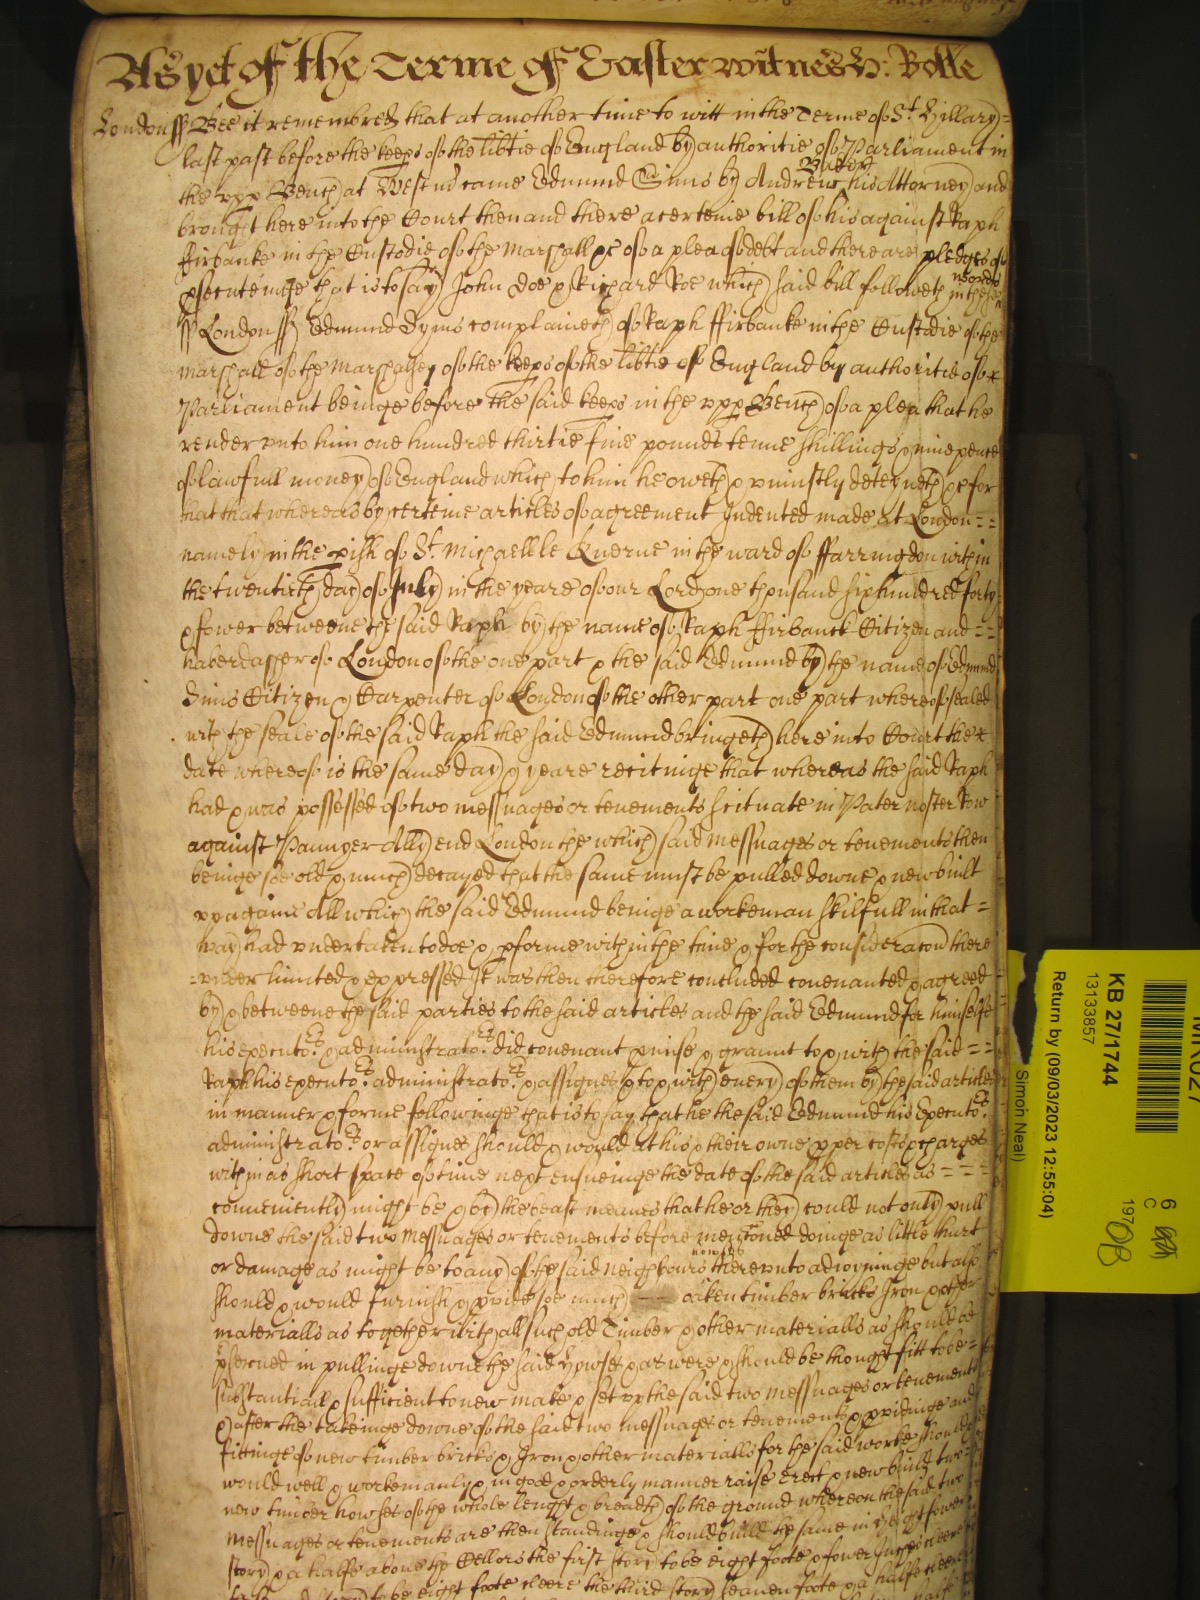 As yet of the Terme of Easter witness H: Rolle
London ss Bee it remembred that at another time to witt in the Terme of St. Hillary =
last past before the keeps of the libtie of England by authoritie of Parliament in
the upp Bench at Westm came Edmund Sims by Andrew Baker his Attorney and
brought here into the Court then and there a certeine bill of his against Raph
ffirbanke in the Custodie of the Marshall &c of a plea of debt and there are pledges of
psecuteinge that is to say John Doe & Richard Roe which said bill followeth in these words
ss London ss Edmund Syms complaineth of Raph ffirbanke in the Custodie of the
Marshall of the Marshalsey of the keeps of the libtie of England by authoritie of
Parliament beinge before the said keeps in the upp Bench of a plea that he
render unto him one hundred thirtie five pounds tenne shillings & nine pence
of lawfull money of England which to him he oweth & uniustly deteyneth &c for
that that whereas by certeine articles of agreement Indented made at London = =
namely in the pish of St. Michaell le Querne in the ward of ffarringdon within
the twentieth day of July in the yeare of our Lord one thousand six hundred forty
& fower betweene the said Raph by the name of Raph ffirbanck Citizen and = =
haberdassher of London of the one part & the said Edmund by the name of Edmund
Sims Citizen & Carpenter of London of the other part one part whereof sealed
with the seale of the said Raph the said Edmund bringeth here into Court the
date whereof is the same day & yeare reciteinge that whereas the said Raph
had & was possessed of two messuages or tenements scituate in Pater noster Row
against Pannyer Ally end London the which said messuages or tenements then
beinge soe old & much decayed that the same must be pulled downe & new built
up againe All which the said Edmund beinge a workeman skilfull in that =
way had undertaken to doe & pforme within the time & for the consideracon there
= under limited & expressed It was then therefore concluded covenanted & agreed
by & betweene the said parties to the said articles and the said Edmund for himselfe
his executors & administrators did covenant pmise & graunt to & with the said = =
Raph his executors administrators & assignes & to & with every of them by the said articles
in manner & forme followinge that is to say that he the said Edmund his Executors
administrators or assignes should & would at his & their owne pper costs & charges
within as short space of time next ensueinge the date of the said articles as = = =
conveniently might be & by the beast meanes that he or they could not only pull
downe the said two messuages or tenements before mencioned doinge as little hurt
or damage as might be to any of the said neighbours howses thereunto adioyninge but also
should & would furnish & pvide soe much oaken timber bricks Iron & other
materialls as together with all such old Timber & other materialls as should be
pserved in pullinge downe the said howses & as were & should be thought fitt to be =
substantiall & sufficient to new make & set up the said two messuages or tenements
& after the takeinge downe of the said two messuages or tenements & pvidinge and
fittinge of new timber bricks & Iron & other materialls for the said worke should
would well & workemanly & in good & orderly manner raise erect & new build two
new timber howses of the whole lenght & breadth of the ground whereon the said two
messuages or tenements are then standinge & should build the same in height fower
story & a halfe above the Cellors the first story to be eight foote & fower Inches cleere
to be eight foote cleere the third story seaven foote & a halfe cleere
KB 27/1744
13133857
Return by (09/03/2023 12:55:04)
Simon Neal)
6
C
197